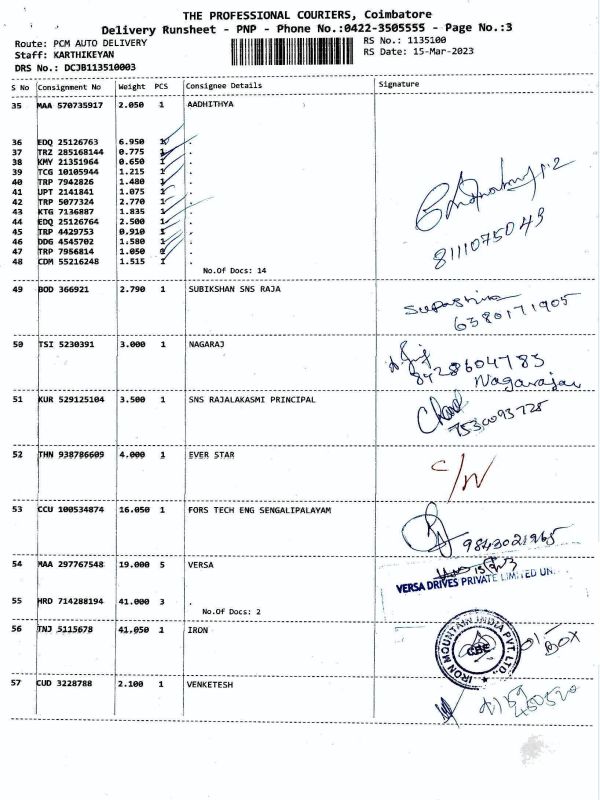 THE PROFESSIONAL COURIERS, Coimbatore
Delivery Runsheet - PNP - Phone No.:0422-3505555 - Page No.:3
Route: PCM AUTO DELIVERY
RS No.: 1135100
Staff: KARTHIKEYAN
RS Date: 15-Mar-2023
DRS No.: DCJB113510003
S No Consignment No Weight PCS Consignee Details Signature
35 MAA 570735917 2.050 1 AADHITHYA
36 EDQ 25126763 6.950 1 .
37 TRZ 285168144 0.775 1 .
38 KMY 21351964 0.650 1 .
39 TCG 10105944 1.215 1 .
40 TRP 7942826 1.480 1 .
41 UPT 2141841 1.075 1 .
42 TRP 5077324 2.770 1 .
43 KTG 7136887 1.835 1 .
44 EDQ 25126764 2.500 1 .
45 TRP 4429753 0.910 1 .
46 DDG 4545702 1.580 1 .
47 TRP 7956814 1.050 .
48 CDM 55216248 1.515 1 .
8111075049
No.Of Docs: 14
49 BOD 366921 2.790 1 SUBIKSHAN SNS RAJA
6380171905
50 TSI 5230391 3.000 1 NAGARAJ
8428604783
Nagarajan
51 KUR 529125104 3.500 1 SNS RAJALAKASMI PRINCIPAL
7530093725
52 THN 938786609 4.000 1 EVER STAR
C/N
53 CCU 100534874 16.050 1 FORS TECH ENG SENGALIPALAYAM
9843021965
54 MAA 297767548 19.000 5 VERSA
VERSA DRIVES PRIVATE LIMITED UN
55 HRD 714288194 41.000 3 .
No.Of Docs: 2
56 TNJ 5115678 41.050 1 IRON
IRON MOUNTAIN INDIA PVT. LTD.
CBE
01- BOX
57 CUD 3228788 2.100 1 VENKETESH